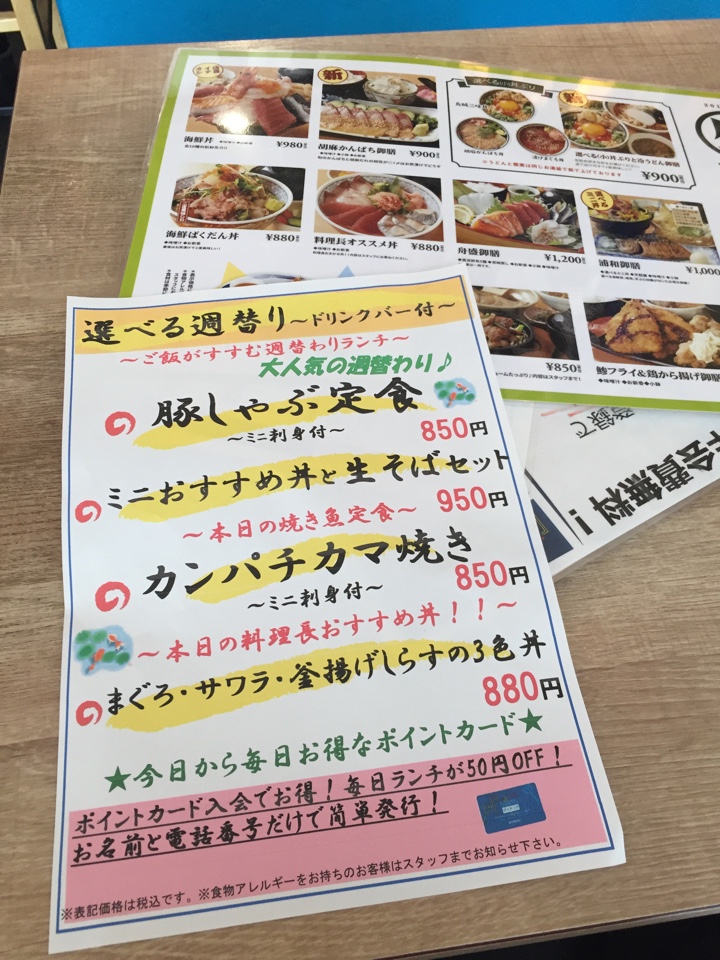 海鮮丼
¥980
新
胡麻かんぱち御膳
¥900
選べる(小)丼ぶり
選べる(小)丼ぶりと冷うどん御膳
¥900
海鮮ばくだん丼
¥880
料理長オススメ丼
¥880
舟盛御膳
¥1,200
浦和御膳
¥1,000
¥850
鯵フライ&鶏から揚げ御膳
会費無料!
選べる週替り～ドリンクバー付～
～ご飯がすすむ週替わりランチ～
大人気の週替わり♪
豚しゃぶ定食
～ミニ刺身付～
850円
ミニおすすめ丼と生そばセット
950円
～本日の焼き魚定食～
カンパチカマ焼き
～ミニ刺身付～
850円
～本日の料理長おすすめ丼！！～
まぐろ・サワラ・釜揚げしらすの3色丼
880円
★今日から毎日お得なポイントカード★
ポイントカード入会でお得！毎日ランチが50円OFF！
お名前と電話番号だけで簡単発行！
※表記価格は税込です。※食物アレルギーをお持ちのお客様はスタッフまでお知らせ下さい。